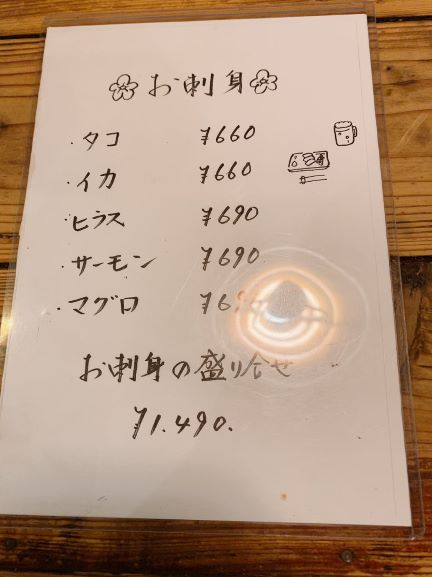 お刺身
・タコ ¥660
・イカ ¥660
・ヒラス ¥690
・サーモン ¥690
・マグロ
お刺身の盛り合せ
¥1.490.